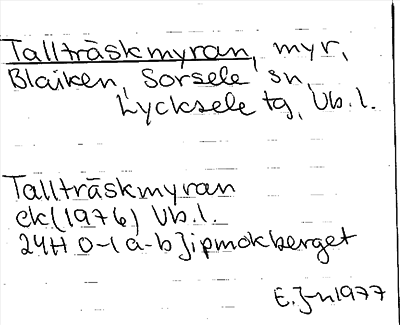 Tallträskmyran, myr,
Blaiken, Sorsele sn,
Lycksele tg, Vb.l.
Tallträskmyran
ek (1976) Vb.l.
24H 0-1 a-b Jipmokberget
E.J-n 1977